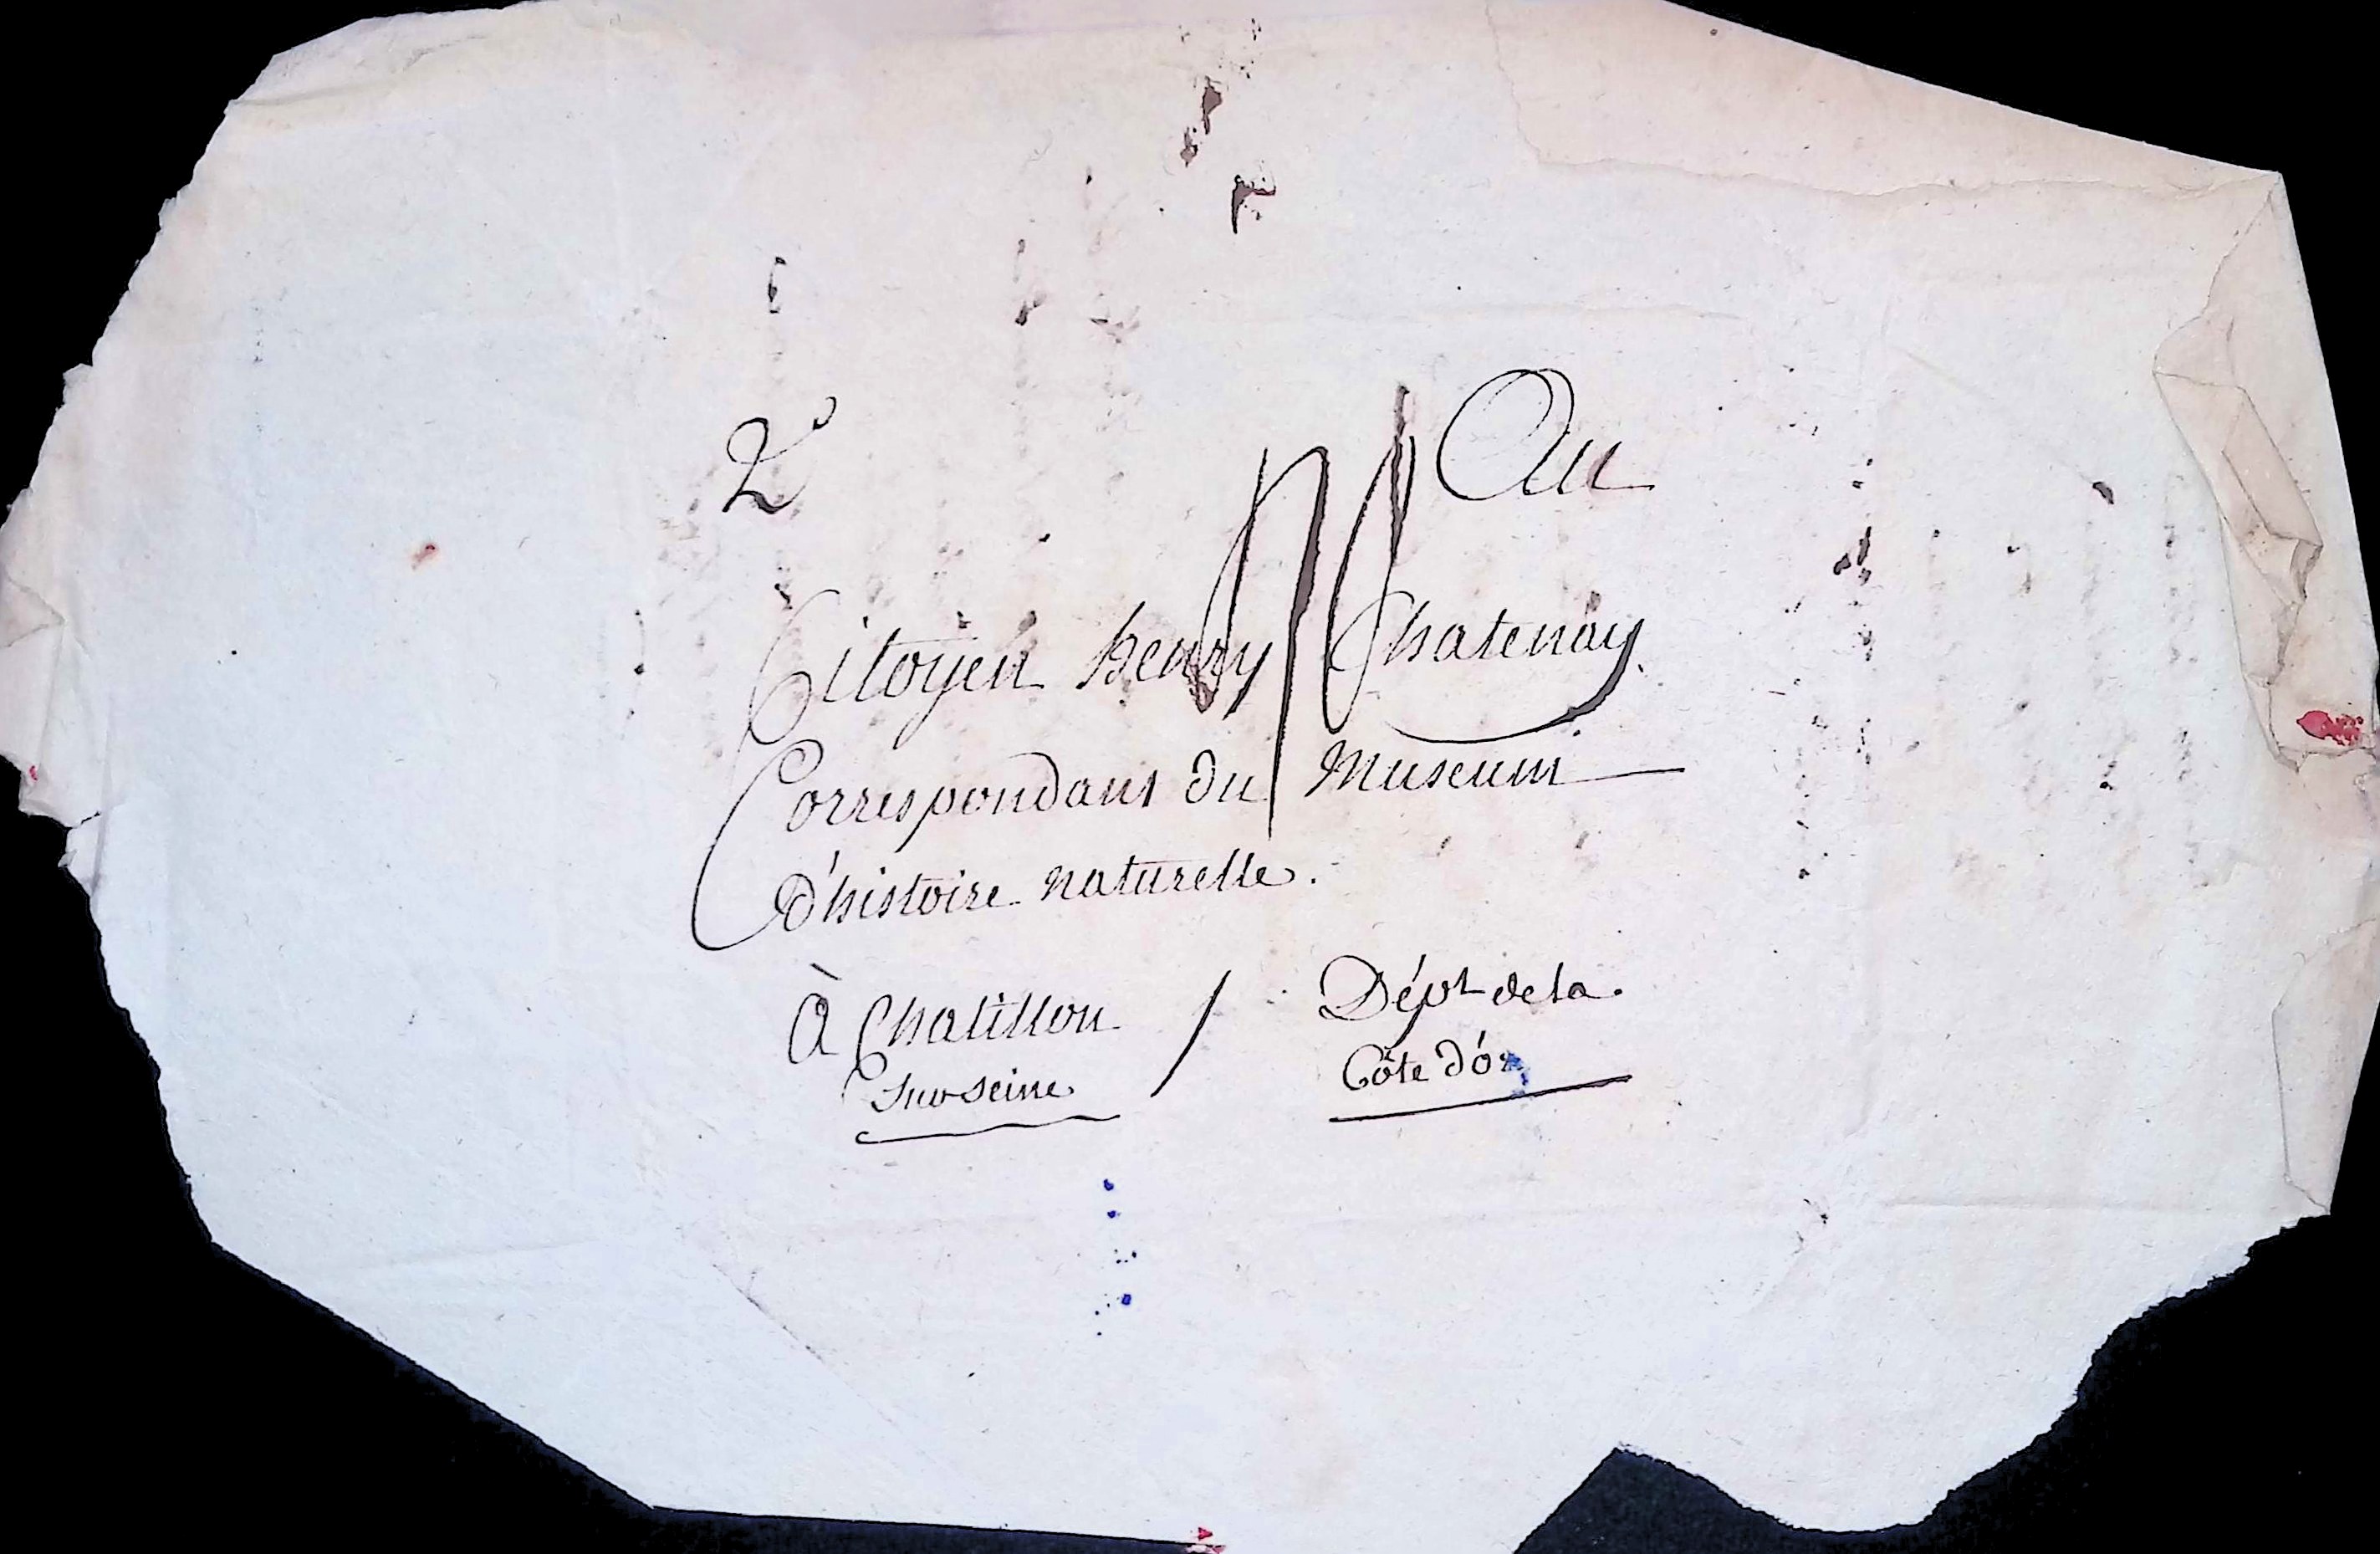 2°
Au
Citoyen henry Chatenay
Correspondant du Museum
d'histoire naturelle.
À Chatillon / Dépt de la
Sur Seine Côte d'or